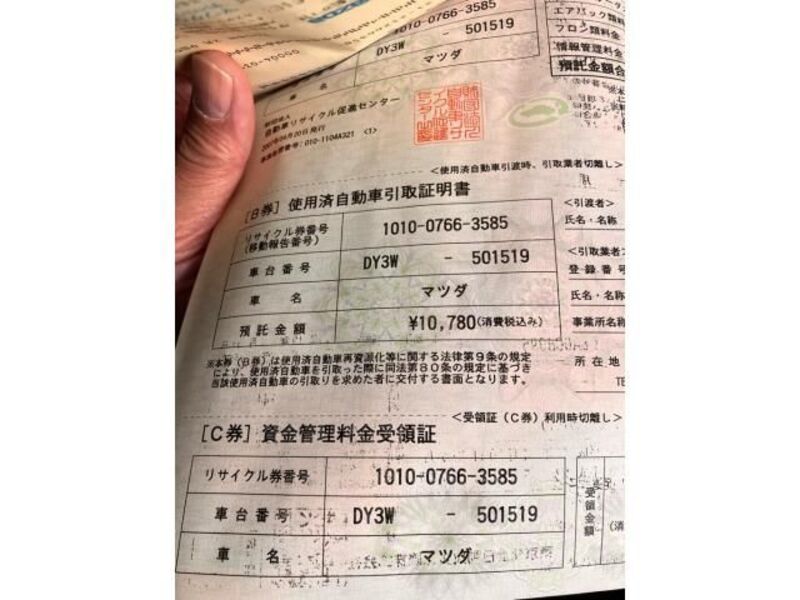 1010-0766-3585
DY3W - 501519
車名 マツダ
エアバッグ類料
フロン類料金
情報管理料金
預託金額合
財団法人
自動車リサイクル促進センター
010-1104A321 <1>
<使用済自動車引渡時、引取業者切離し>
[B券] 使用済自動車引取証明書
リサイクル券番号
(移動報告番号) 1010-0766-3585
車台番号 DY3W - 501519
車名 マツダ
預託金額 ¥10,780(消費税込み)
※本券(B券)は使用済自動車再資源化等に関する法律第9条の規定
により、使用済自動車を引取った際に同法第80条の規定に基づき
当該使用済自動車の引取りを求めた者に交付する書面となります。
<引渡者>
氏名・名称
<引取業者>
登録番号
氏名・名称
事業所名称
所在地
TE
<受領証(C券)利用時切離し>
[C券] 資金管理料金受領証
リサイクル券番号 1010-0766-3585
車台番号 DY3W - 501519
車名 マツダ
受領金額